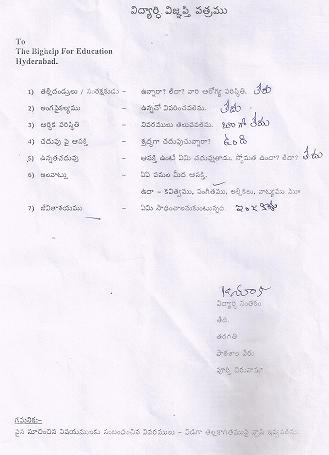 విద్యార్థి విజ్ఞప్తి పత్రము
To
The Bighelp For Education
Hyderabad.
1) తల్లిదండ్రులు / సంరక్షకుడు - ఉన్నారా? లేదా? వారి ఆరోగ్య పరిస్థితి. లేరు
2) అంగవైకల్యము - ఉన్నచో వివరించవలెను. లేదు
3) ఆర్థిక పరిస్థితి - వివరములు తెలుపవలెను. బాగో లేదు
4) చదువు పై ఆసక్తి - శ్రద్ధగా చదువుచున్నారా? ఉంది
5) ఉన్నతచదువు - ఆసక్తి ఉంటే ఏమి చదువుతారు. స్తోమత ఉందా? లేదా? లేదు
6) అలవాట్లు - ఏఏ పనుల మీద ఆసక్తి.
ఉదా - కవిత్వము, సంగీతము, అల్లికలు, నాట్యము
7) జీవితాశయము - ఏమి సాధించాలనుకుంటున్నారు.
విద్యార్థి సంతకం
తేది.
తరగతి
పాఠశాల పేరు
పూర్తి చిరునామా
గమనిక:-
పైన సూచించిన విషయములకు సంబంధించిన వివరములు - విడిగా తెల్లకాగితముపై వ్రాసి ఇవ్వవలెను.